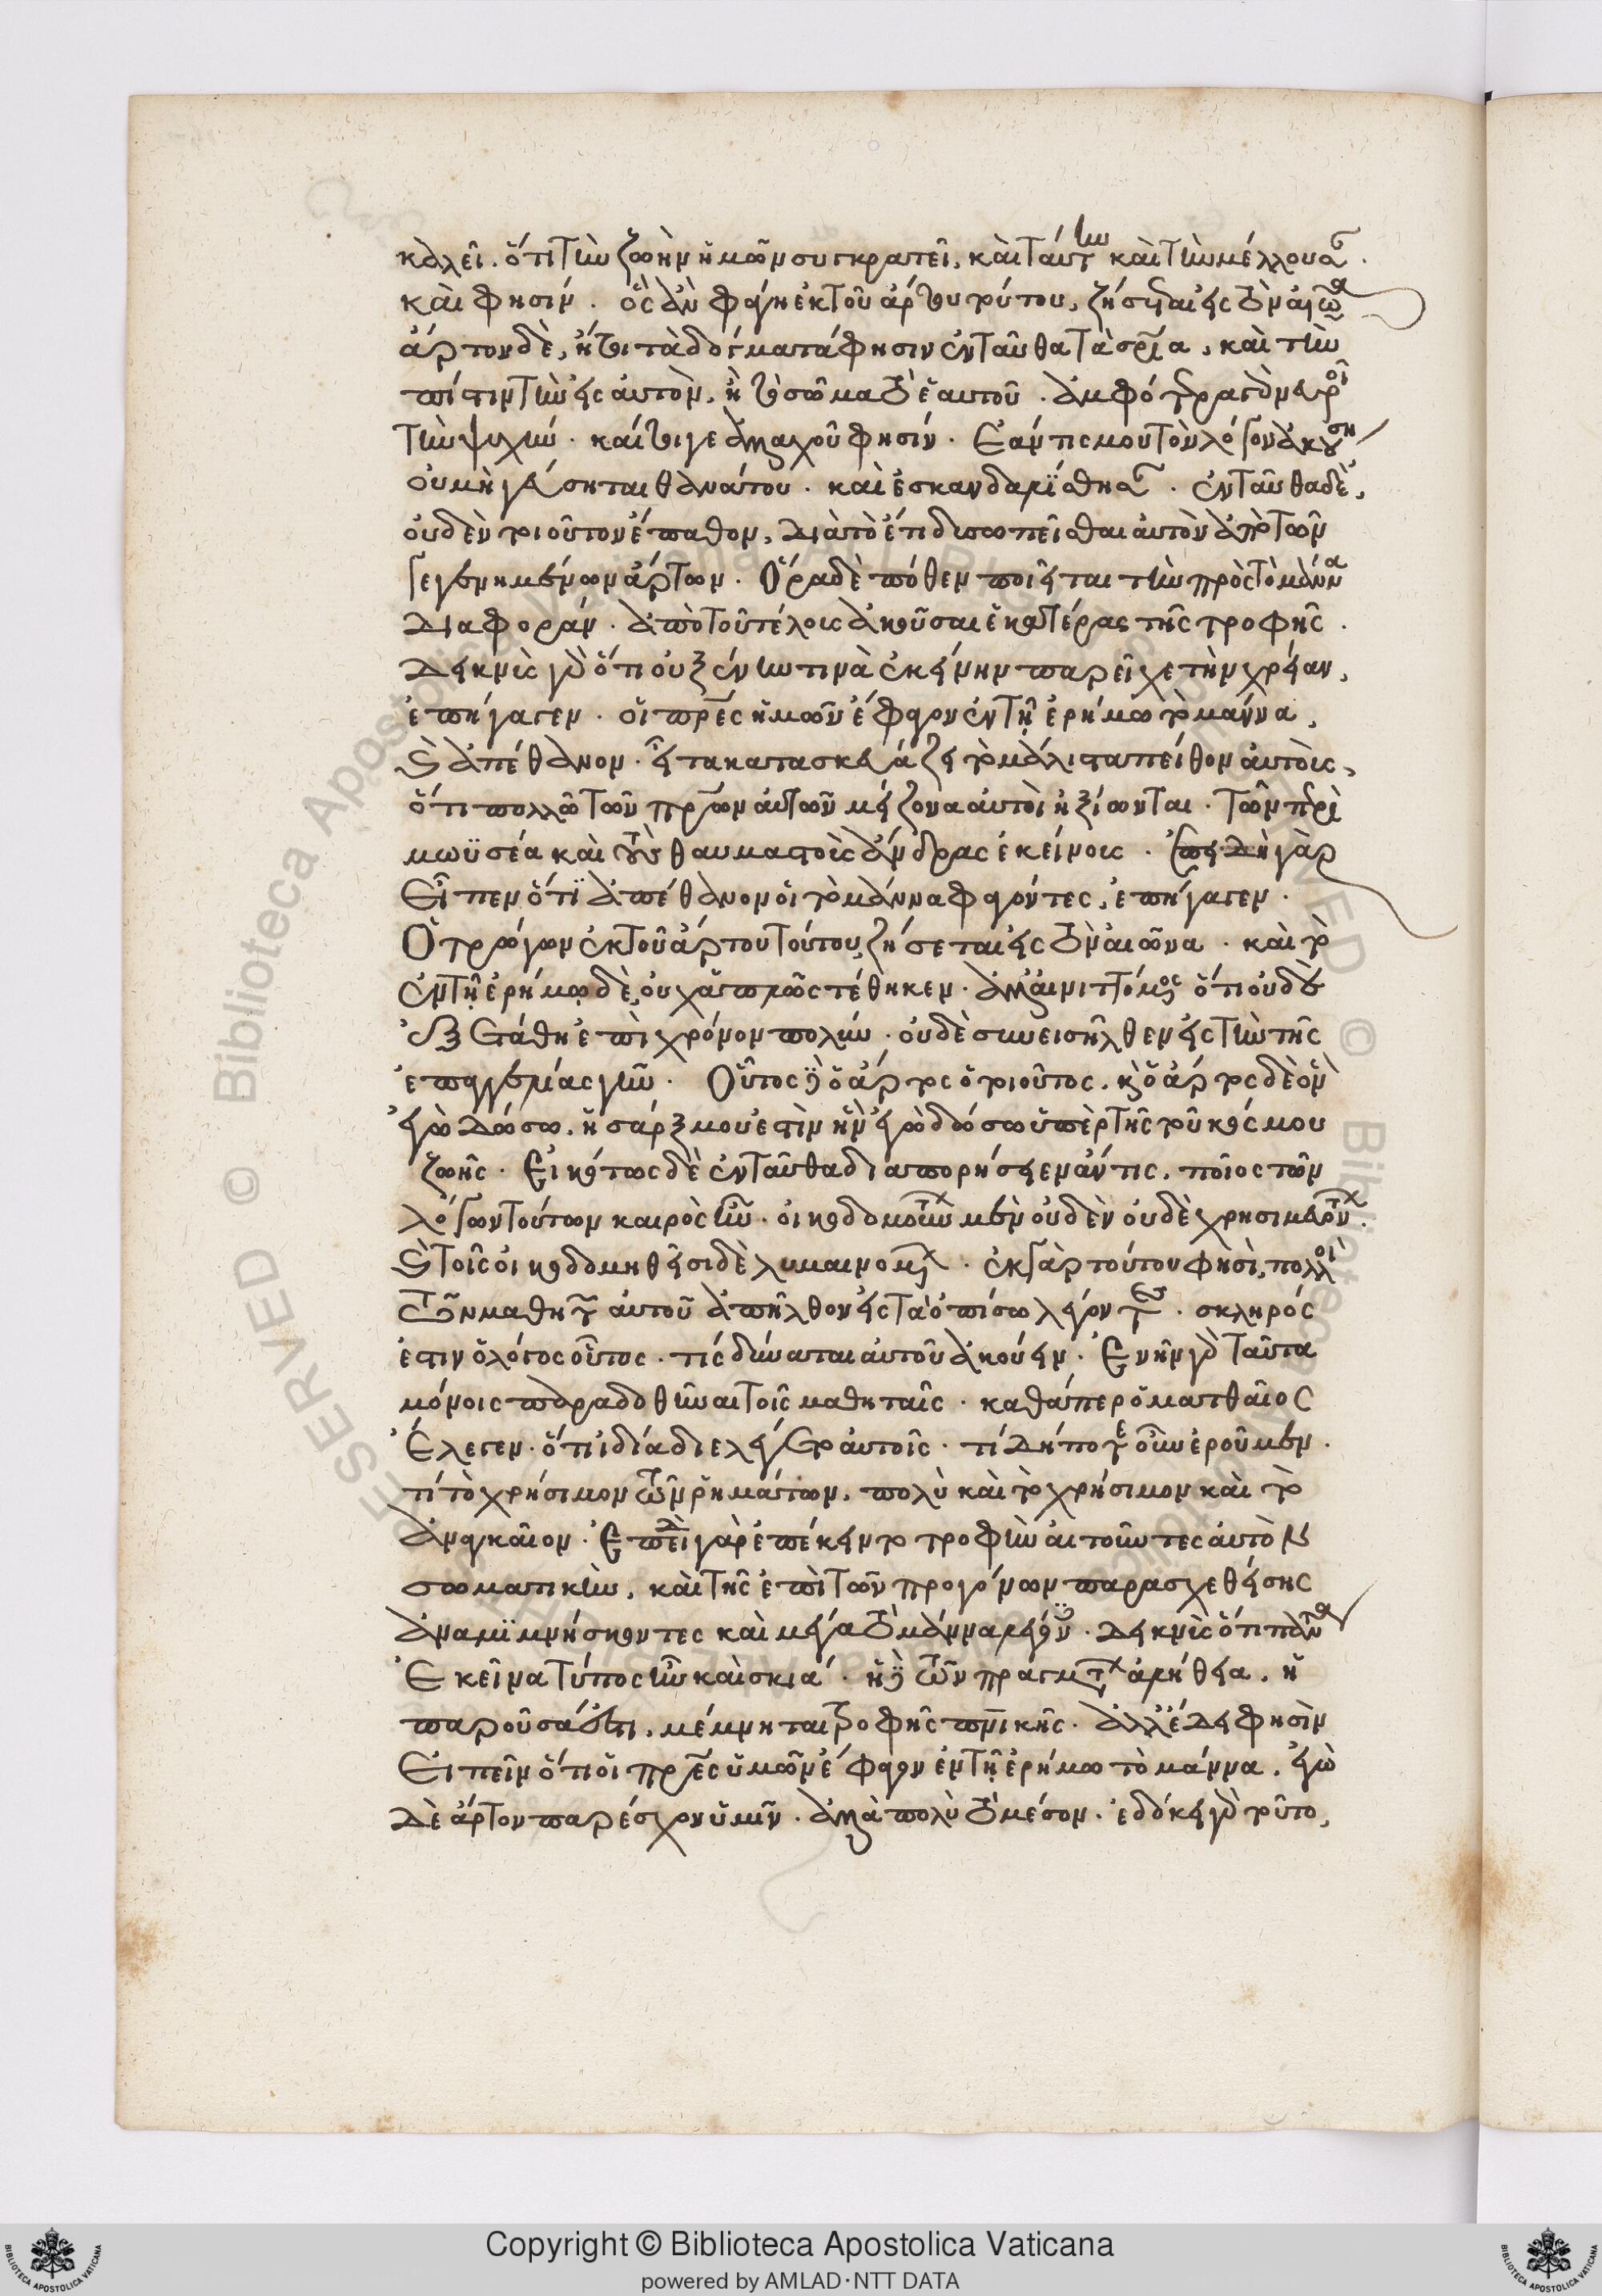 καλεῖ. ὅτι τὴν ζωὴν ἡμῶν συγκρατεῖ, καὶ ταύτην καὶ τὴν μέλλουσαν.
καὶ φησίν. ὃς ἂν φάγῃ ἐκ τοῦ ἄρτου τούτου, ζήσεται εἰς τὸν αἰῶνα
ἄρτον δὲ, ἤτοι τὰ δόγματά φησιν ἐνταῦθα τὰ σωτήρια, καὶ τὴν
πίστιν τὴν εἰς αὐτὸν, ἢ τὸ σῶμα τὸ ἑαυτοῦ. ἀμφότερα γὰρ νευροῖ
τὴν ψυχήν. καίτοιγε ἀλλαχοῦ φησίν. Ἐάν τις μου τὸν λόγον ἀκούσῃ
οὐ μὴ γεύσηται θανάτου. καὶ ἐσκανδαλίσθησαν. ἐνταῦθα δὲ,
οὐδὲν τοιοῦτον ἔπαθον, διὰ τὸ ἔτι δυσωπεῖσθαι αὐτὸν ἀπὸ τῶν
γεγενημένων ἄρτων. Ὅρα δὲ πόθεν ποιεῖται τὴν πρὸς τὸ μάννα
διαφοράν. ἀπὸ τοῦ τέλους ἀκοῦσαι ἑκατέρας τῆς τροφῆς.
Δεικνὺς γὰρ ὅτι οὐ ξένην τινὰ ἐκείνην παρεῖχε τὴν χρείαν,
ἐπήγαγεν. οἱ πατέρες ἡμῶν ἔφαγον ἐν τῇ ἐρήμω τὸ μάννα,
καὶ ἀπέθανον. εἶτα κατασκευάζει τὸ μάλιστα πείθον αὐτοὺς,
ὅτι πολλῶ τῶν πατέρων αὐτῶν μείζονα αὐτοὶ ἠξίωνται. τῶν περὶ
μωϋσέα καὶ τοὺς θαυμαστοὺς ἄνδρας ἐκείνους. ἐπειδὴ γὰρ
Εἶπεν ὅτι ἀπέθανον οἱ τὸ μάννα φαγόντες, ἐπήγαγεν.
Ὁ τρώγων ἐκ τοῦ ἄρτου τούτου, ζήσεται εἰς τὸν αἰῶνα. καὶ τὸ
ἐν τῇ ἐρήμω δὲ, οὐχ ἁπλῶς τέθηκεν. ἀλλ' αἰνιττόμενος ὅτι οὐδὲ
ἐξετάθη ἐπὶ χρόνον πολύν. οὐδὲ συνεισῆλθεν εἰς τὴν τῆς
ἐπαγγελίας γῆν. Οὗτος δὲ ὁ ἄρτος οὐ τοιοῦτος. καὶ ὁ ἄρτος δὲ ὃν
ἐγὼ δώσω, ἡ σάρξ μου ἐστὶν ἣν ἐγὼ δώσω ὑπὲρ τῆς τοῦ κόσμου
ζωῆς. Εἰκότως δὲ ἐνταῦθα διαπορήσειεν ἄν τις, ποῖος τῶν
λόγων τούτων καιρὸς ἦν. οἰκοδομούντων μὲν οὐδὲν οὐδὲ χρησιμευόντων.
καὶ τοῖς οἰκοδομηθεῖσι δὲ λυμαινομένων. ἐκ γὰρ τούτου φησὶ, πολλοὶ
τῶν μαθητῶν αὐτοῦ ἀπῆλθον εἰς τὰ ὀπίσω λέγοντες. σκληρός
ἐστιν ὁ λόγος οὗτος. τίς δύναται αὐτοῦ ἀκούειν. Ἐνῆν γὰρ ταῦτα
μόνοις παραδοθῆναι τοῖς μαθηταῖς. καθάπερ ὁ ματθαῖος
Ἔλεγεν. ὅτι ἰδία διελέγετο αὐτοῖς. τί δήποτε οὖν ἐροῦμεν.
τί τὸ χρήσιμον τῶν ῥημάτων, πολὺ καὶ τὸ χρήσιμον καὶ τὸ
ἀναγκαῖον. Ἐπειδὴ γὰρ ἐπέκειντο τροφὴν αἰτοῦντες αὐτὸν
σωματικὴν, καὶ τῆς ἐπὶ τῶν προγόνων παρασχεθείσης
ἀναμιμνήσκοντες καὶ μέγα τὸ μάννα λέγουσι. δεικνὺς ὅτι πάντα
Ἐκεῖνα τύπος ἦν καὶ σκιά. ἡ δὲ τῶν πραγμάτων ἀλήθεια, ἡ
παροῦσά ἐστι, μέμνηται τροφῆς πνευματικῆς. ἀλλ' ἔδει φησὶν
Εἰπεῖν ὅτι οἱ πατέρες ὑμῶν ἔφαγον ἐν τῇ ἐρήμω τὸ μάννα, ἐγὼ
δὲ ἄρτον παρέσχον ὑμῖν. ἀλλὰ πολὺ τὸ μέσον. ἐδόκει γὰρ τοῦτο,
Copyright © Biblioteca Apostolica Vaticana
powered by AMLAD·NTT DATA